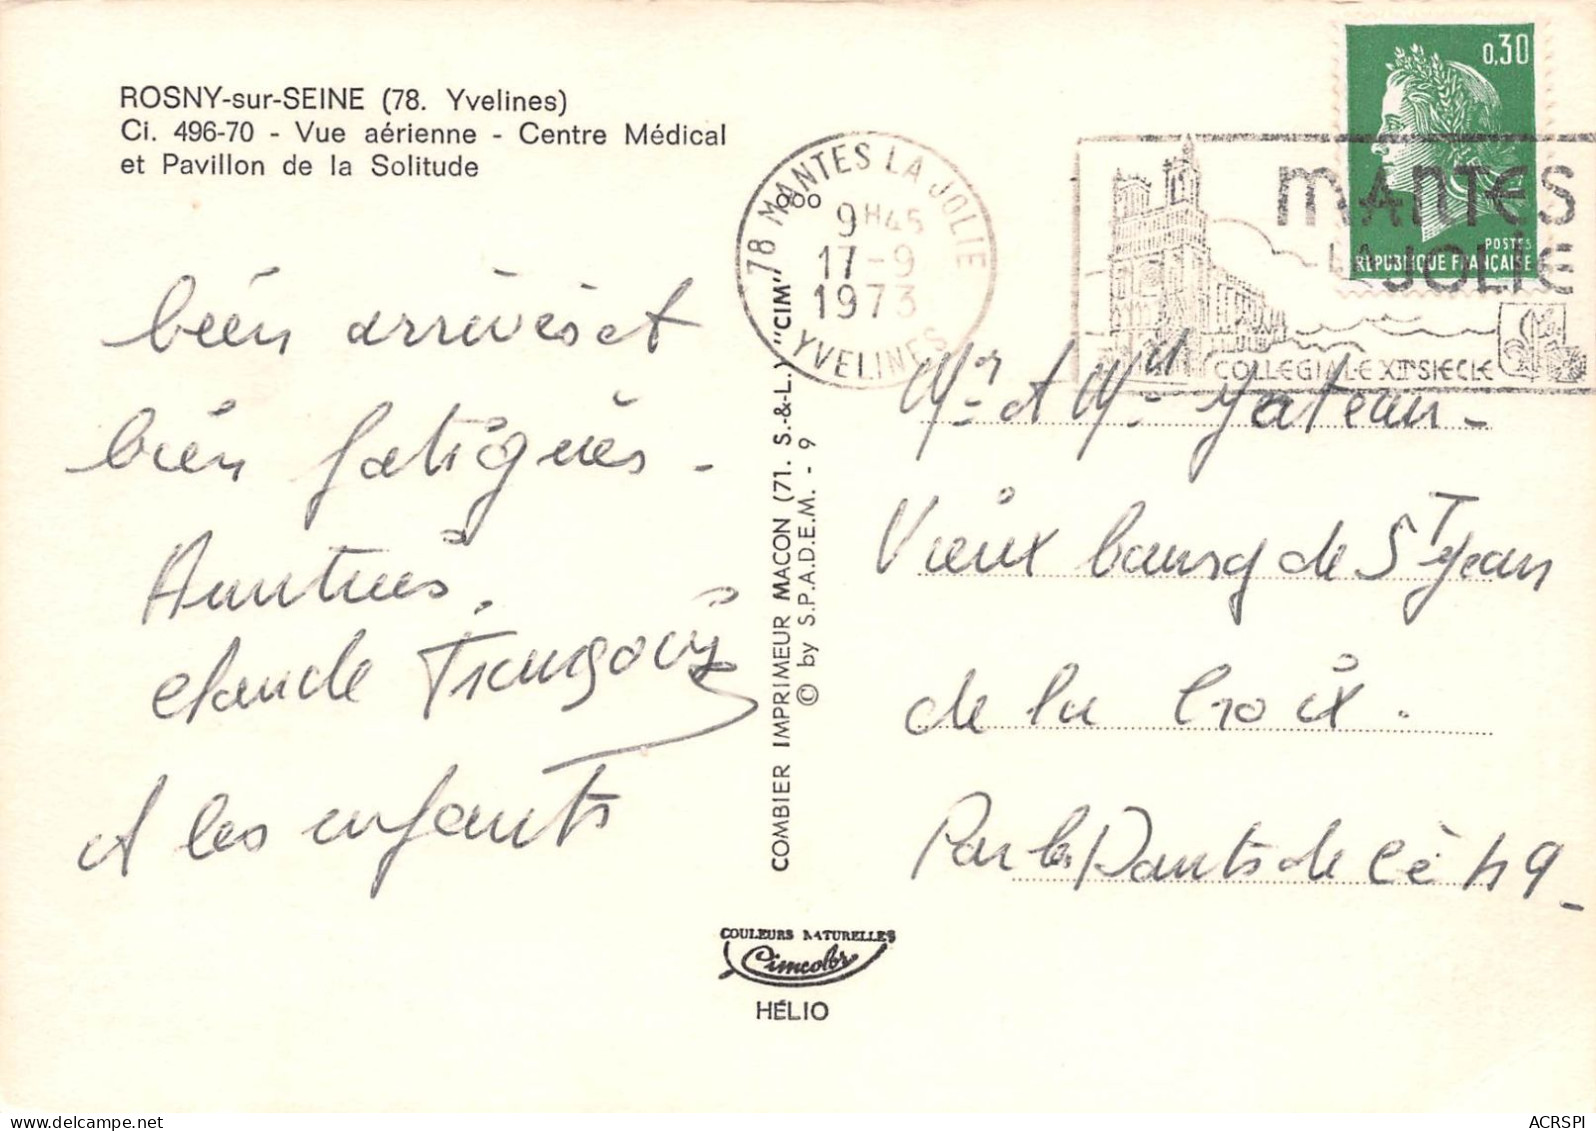 ROSNY-sur-SEINE (78. Yvelines)
Ci. 496-70 - Vue aérienne - Centre Médical
et Pavillon de la Solitude
bien arrivés et
bien fatigués -
Amitiés.
Claude Françoise
et les enfants
COMBIER IMPRIMEUR MACON (71. S.-&-L.) "CIM"
© by S.P.A.D.E.M. - 9
COULEURS NATURELLES
Cimcolor
HÉLIO
78 MANTES LA JOLIE
9H45
17-9
1973
YVELINES
MANTES
LA JOLIE
COLLEGIALE XIIe SIECLE
0,30
POSTES
REPUBLIQUE FRANÇAISE
Mr et Mme Gateau -
Vieux bourg de St Jean
de la Croix.
Par les Ponts de Cé 49 -
ACRSPI